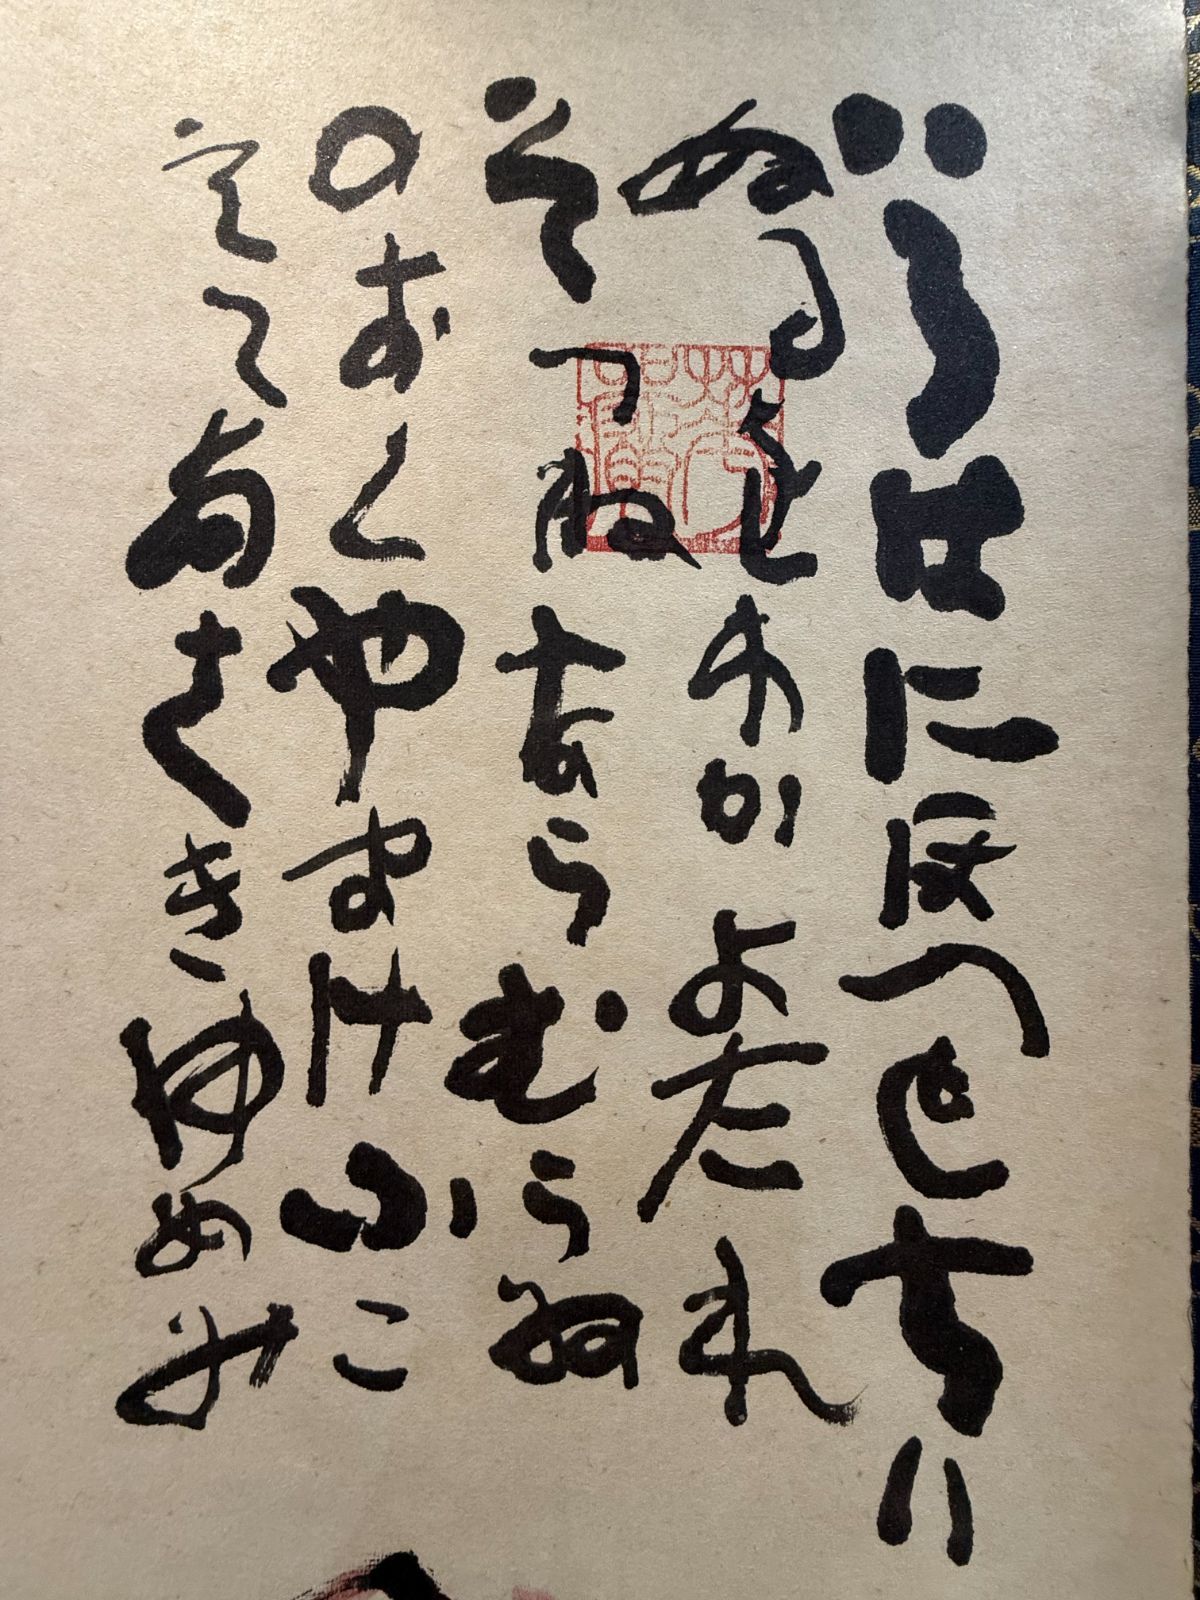 いろはにほへとちり
ぬるをわかよたれ
そつねならむうゐ
のおくやまけふこ
えてあさきゆめみ